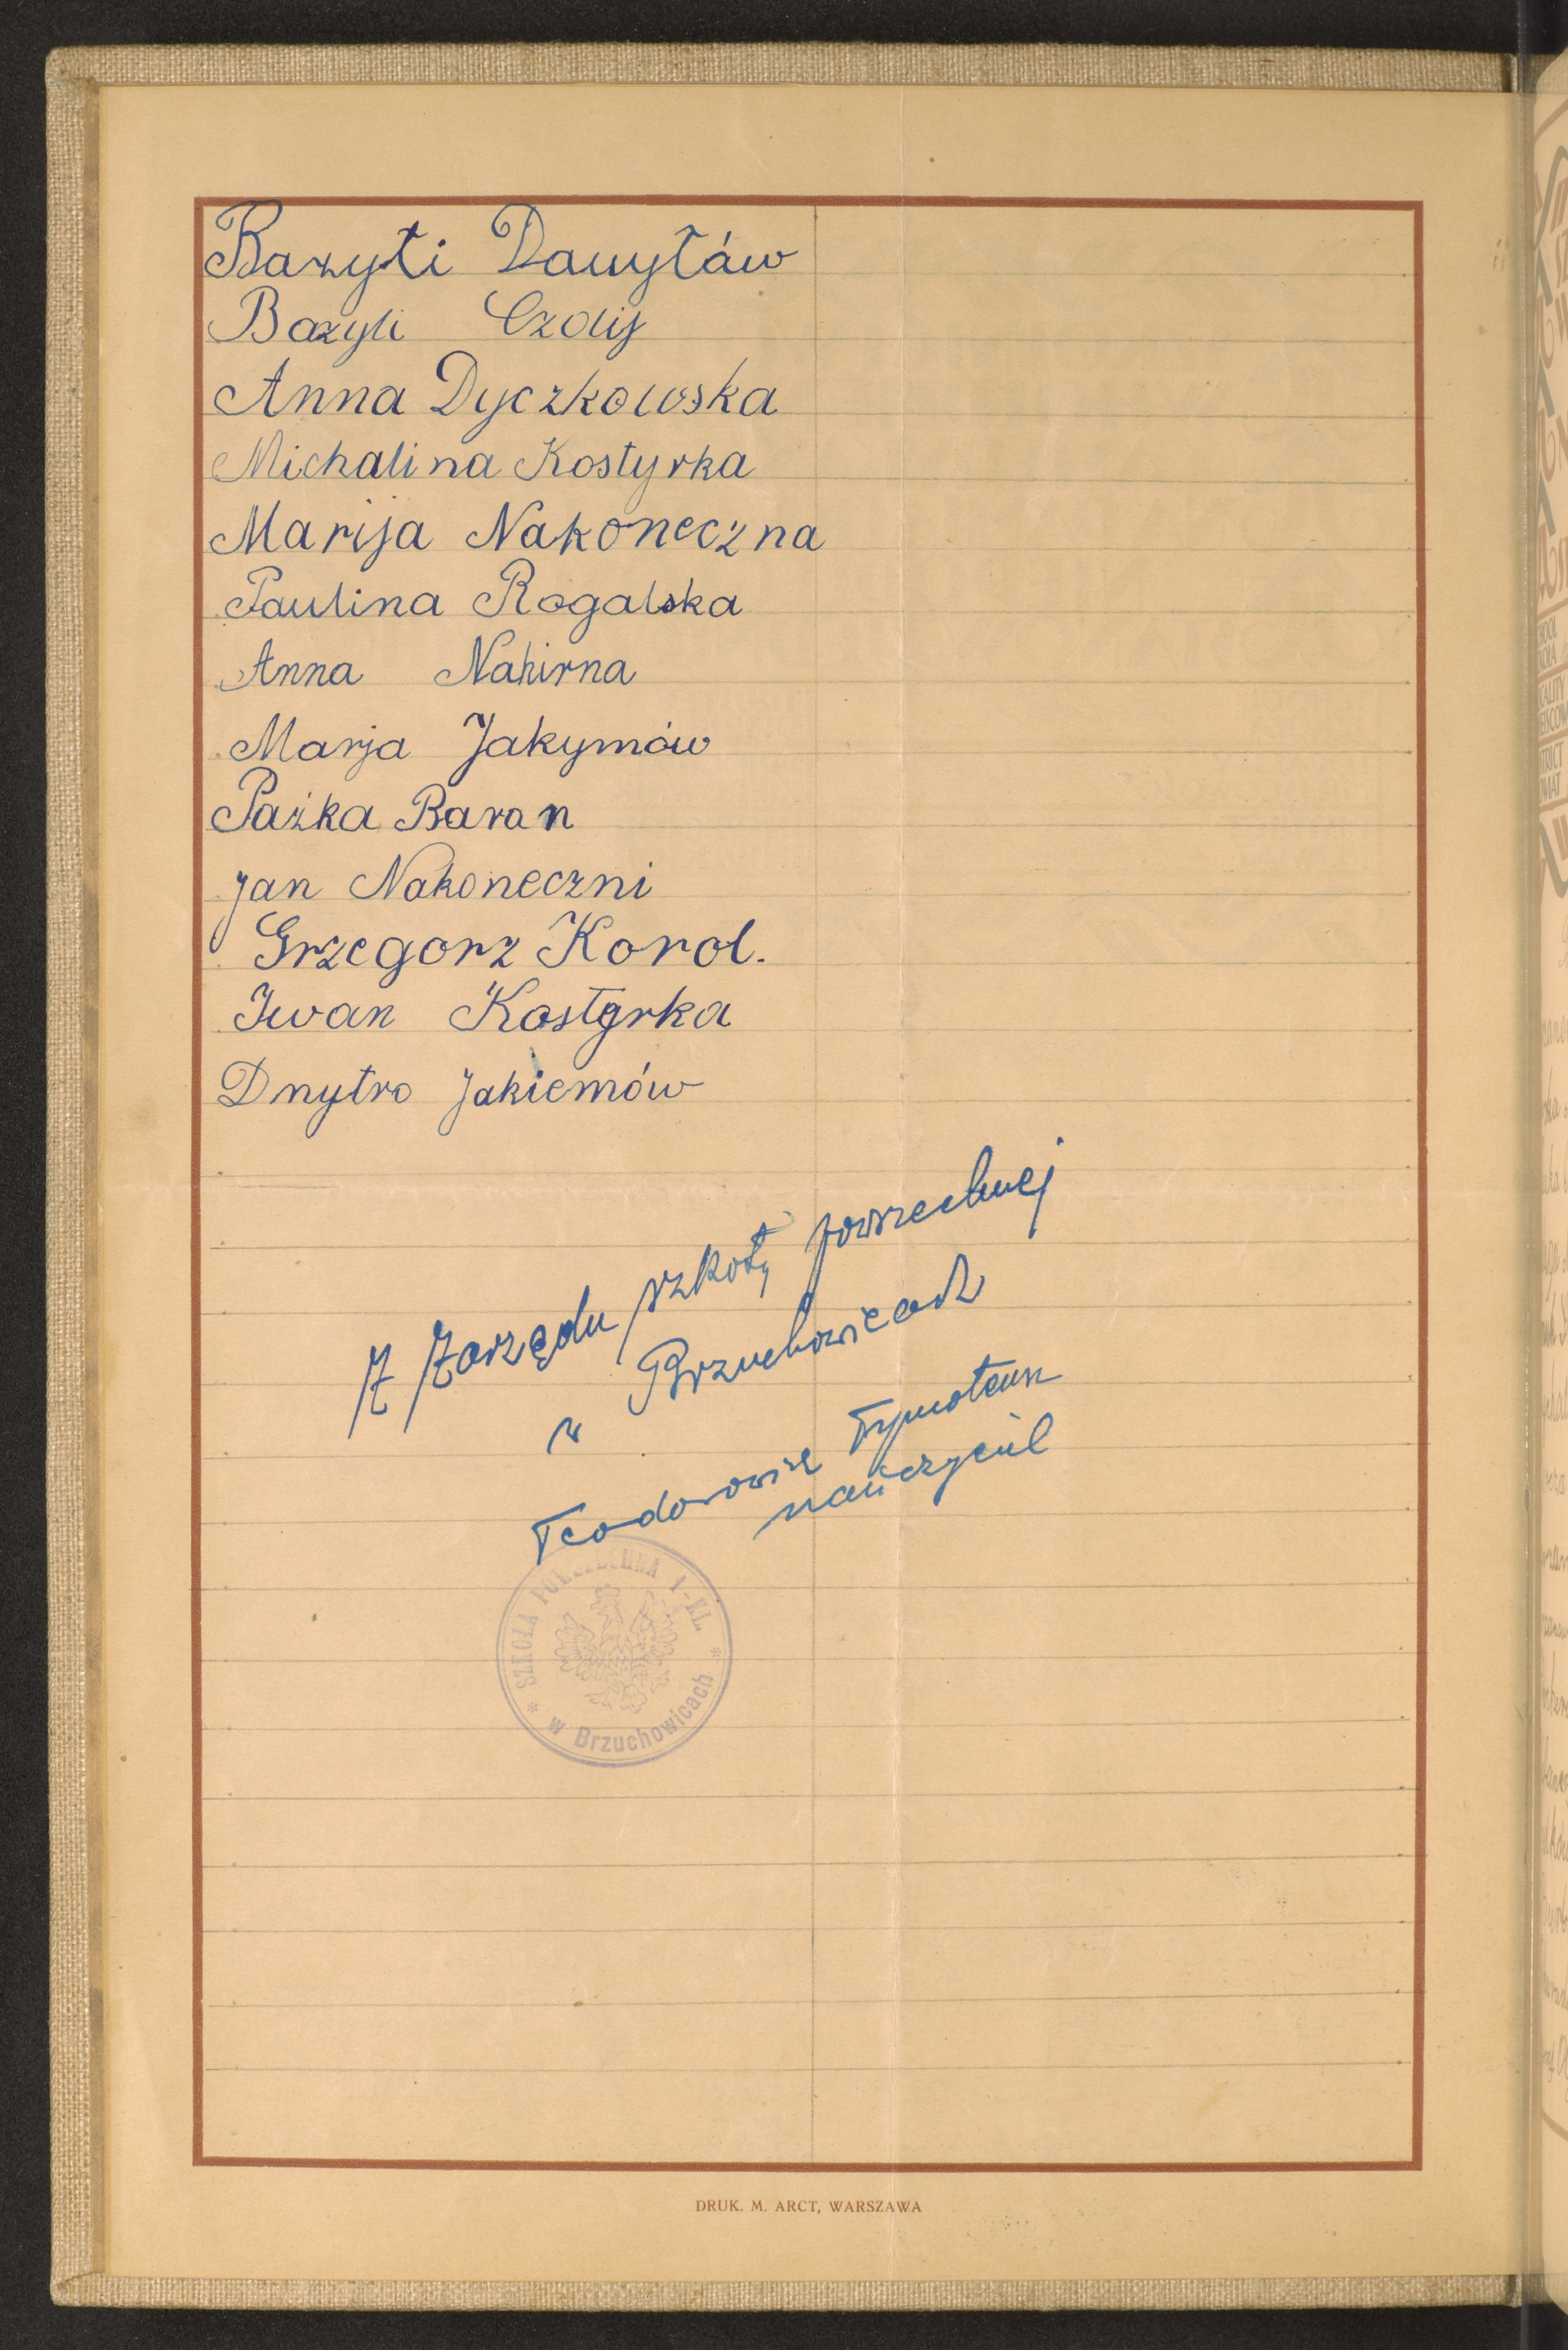 Bazyłi Dawyłów
Bazyli Czdij
Anna Dyczkowska
Michalina Kostyrka
Marija Nakoneczna
Paulina Rogalska
Anna Nahirna
Marja Jakymów
Pażka Baran
Jan Nakoneczni
Grzegorz Korol.
Iwan Kostyrka
Dnytro Jakiemów
Z Zarządu szkoły powszechnej
w Brzuchowicach
Teodorowicz Tymoteusz
nauczyciel
* SZKOŁA POWSZECHNA 1-KL. *
w Brzuchowicach
DRUK. M. ARCT, WARSZAWA